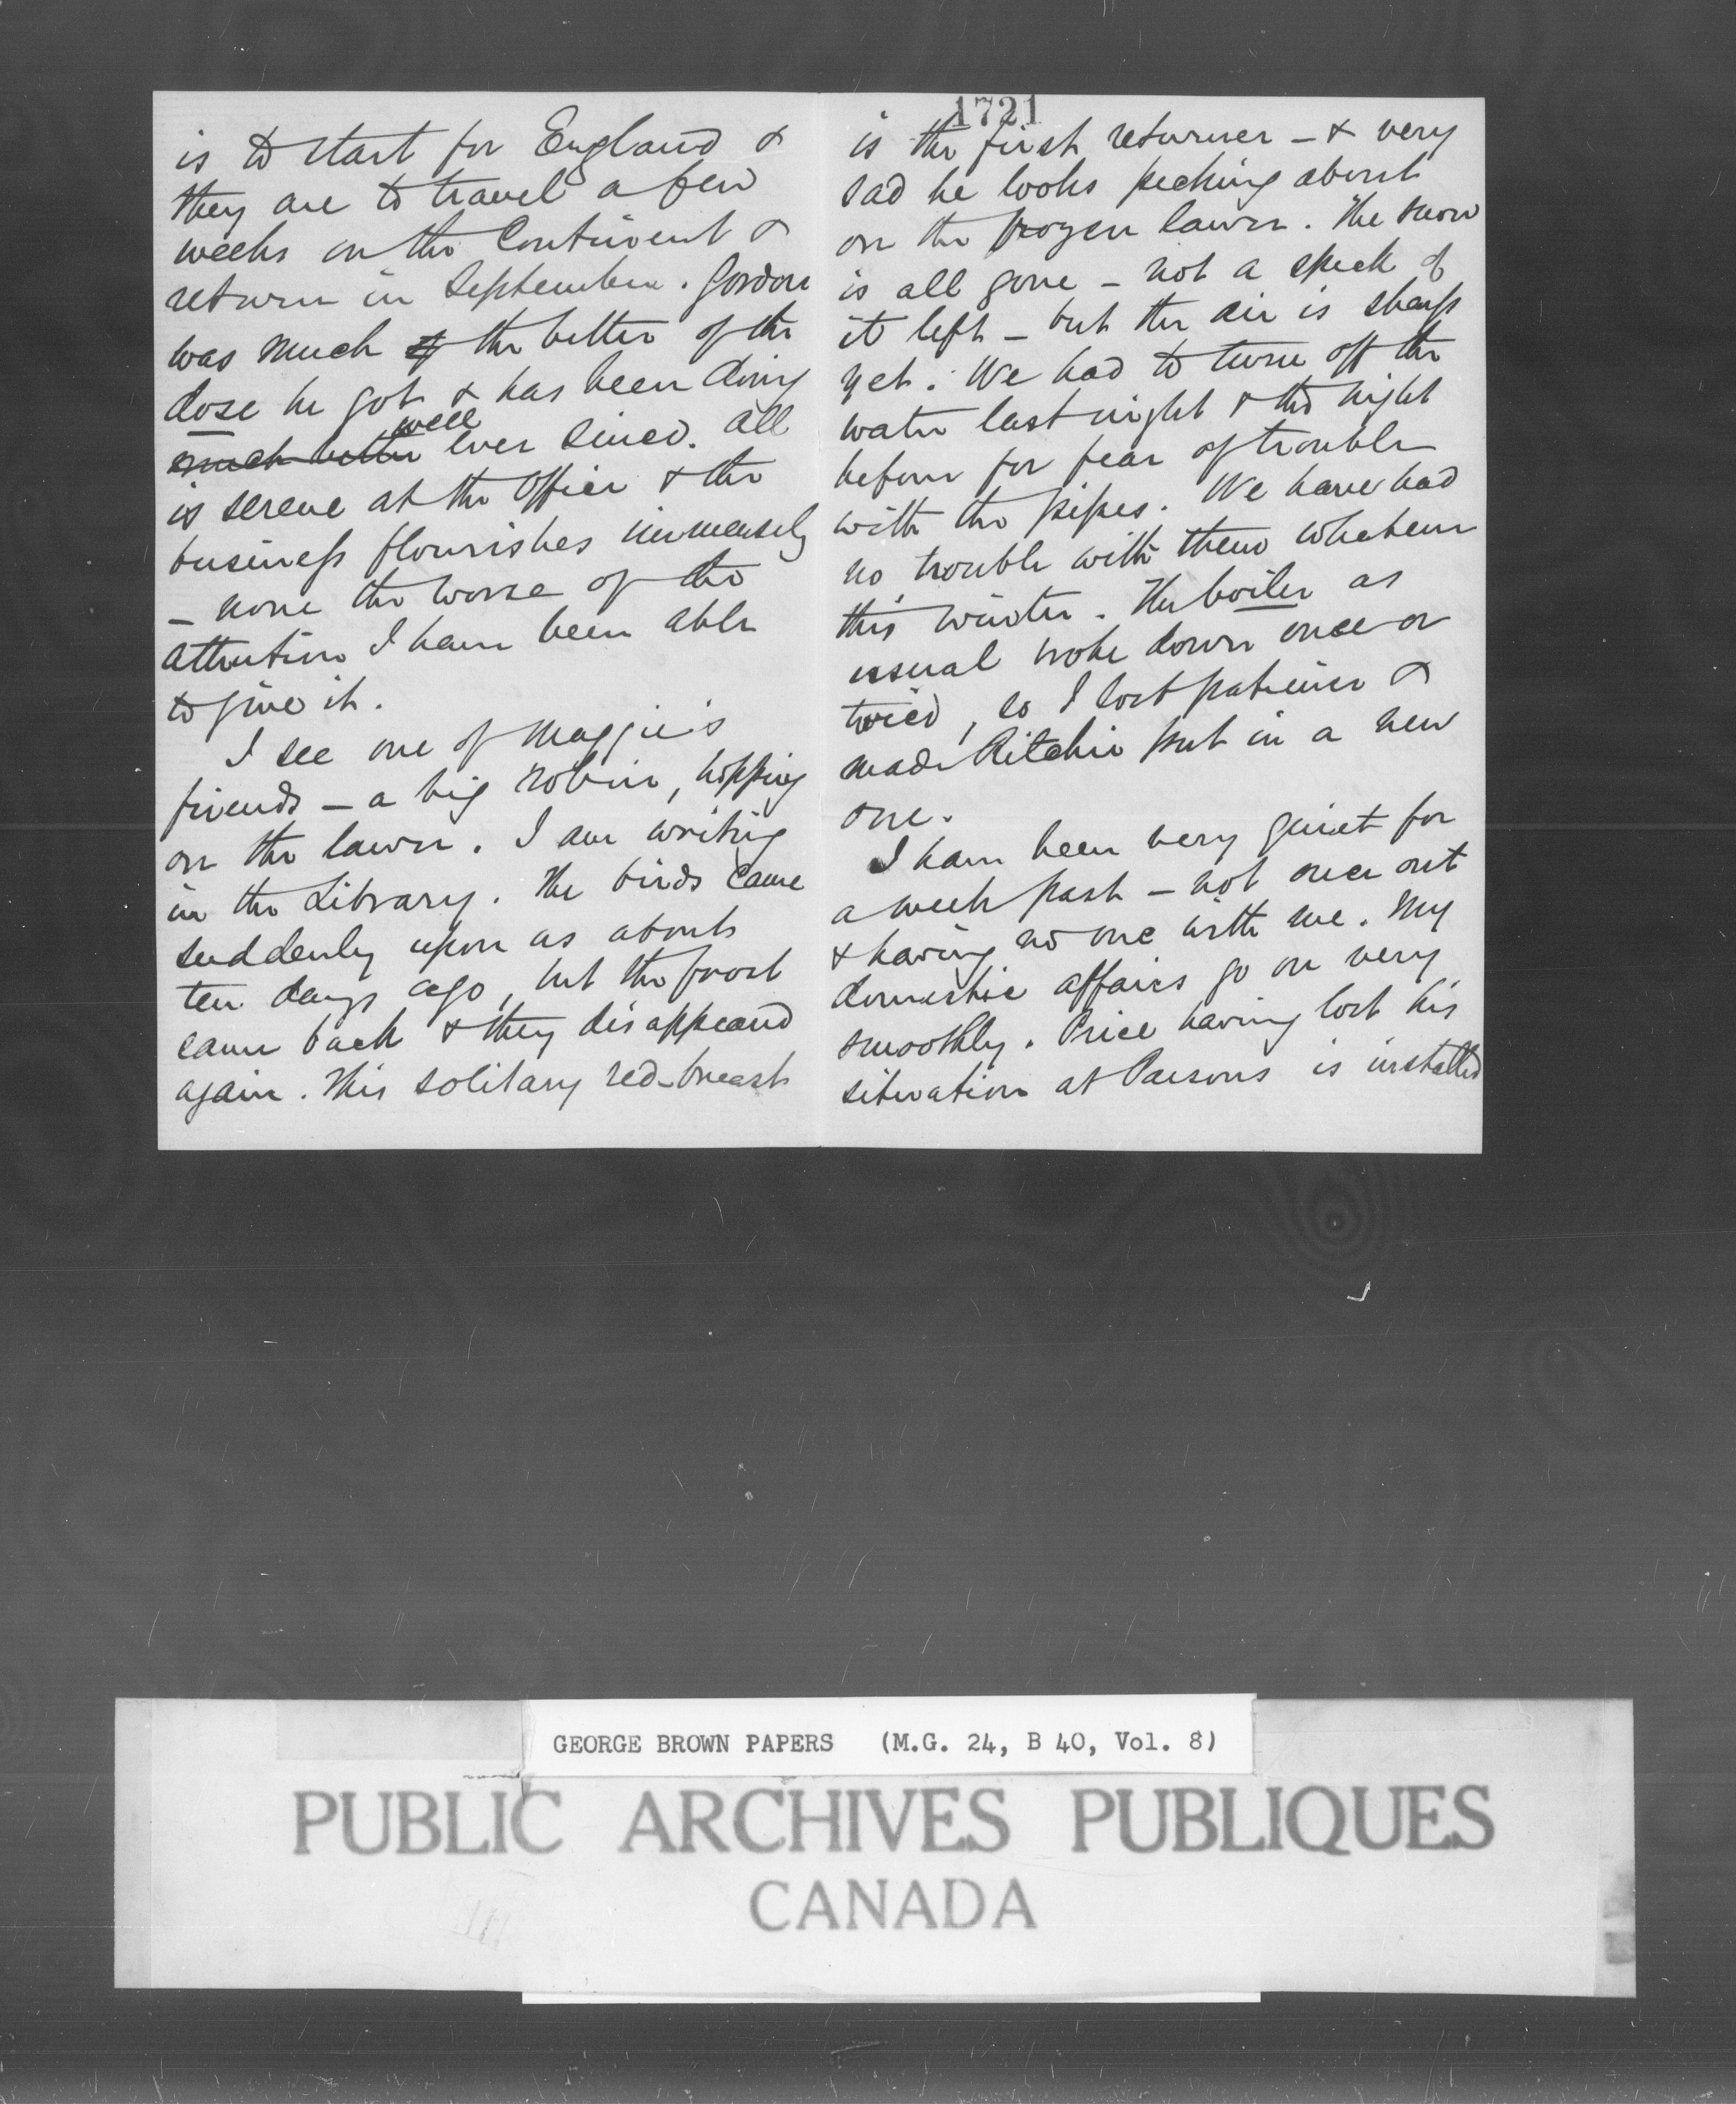 is to start for England &
they are to travel a few
weeks on the Continent &
return in September. Gordon
was much of the better of the
dose he got & has been doing
well
much better ever since. All
is serene at the Office & the
business flourishes immensely
— none the worse of the
attention I have been able
to give it.
I see one of Maggie's
friends — a big robin, hopping
on the lawn. I am writing
in the Library. The birds came
suddenly upon us about
ten days ago, but the frost
came back & they disappeared
again. This solitary red-breast
1721
is the first returner — & very
sad he looks pecking about
on the frozen lawn. The snow
is all gone — not a speck of
it left — but the air is sharp
yet. We had to turn off the
water last night & the night
before for fear of trouble
with the pipes. We have had
no trouble with them whatever
this winter. The boiler as
usual broke down once or
twice, so I lost patience &
made Ritchie put in a new
one.
I have been very quiet for
a week past — not once out
& having no one with me. My
domestic affairs go on very
smoothly. Price having lost his
situation at Parsons is installed
GEORGE BROWN PAPERS (M.G. 24, B 40, Vol. 8)
PUBLIC ARCHIVES PUBLIQUES
CANADA